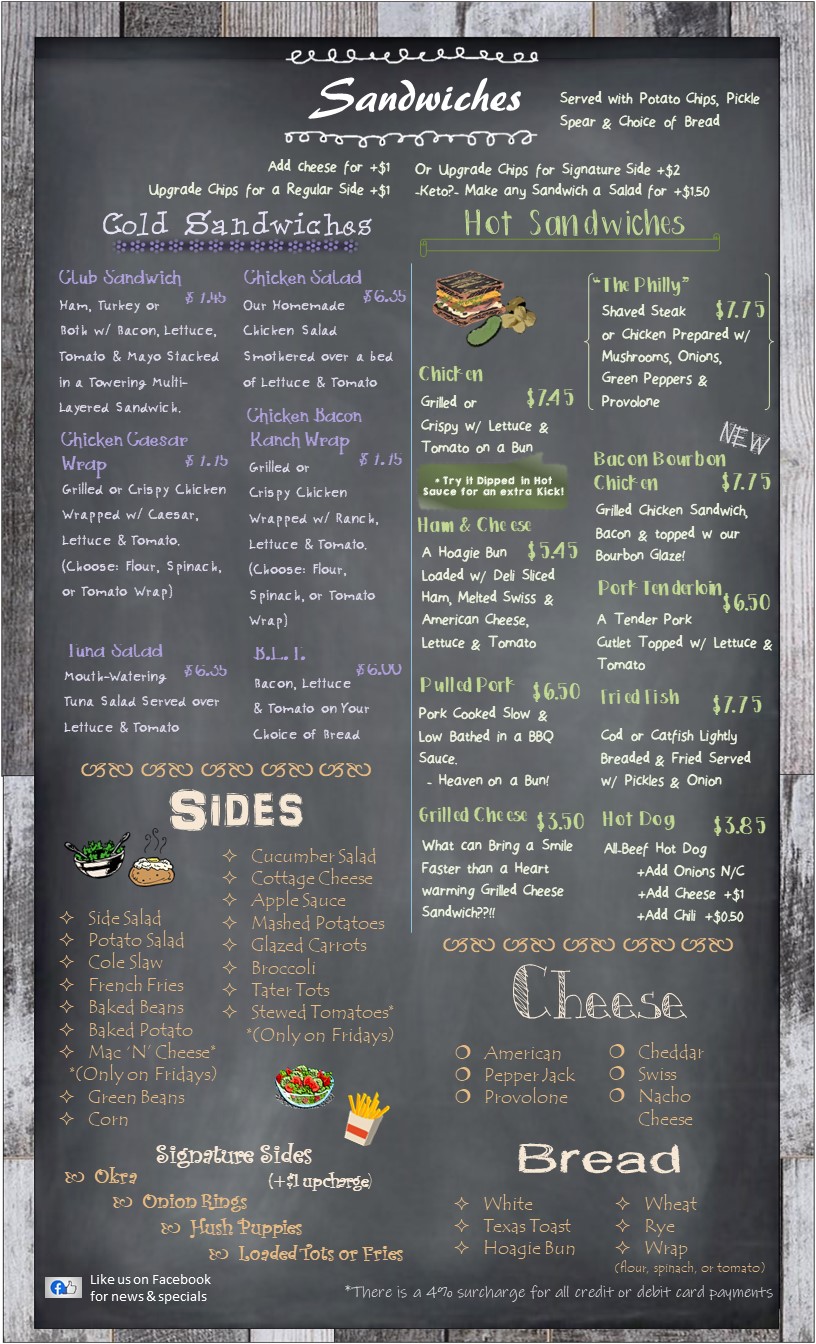 Sandwiches
Served with Potato Chips, Pickle
Spear & Choice of Bread
Add cheese for +$1
Upgrade Chips for a Regular Side +$1
Or Upgrade Chips for Signature Side +$2
-Keto?- Make any Sandwich a Salad for +$1.50
Cold Sandwiches
Club Sandwich
$ 7.45
Ham, Turkey or
Both w/ Bacon, Lettuce,
Tomato & Mayo Stacked
in a Towering Multi-
Layered Sandwich.
Chicken Caesar
Wrap
Grilled or Crispy Chicken
Wrapped w/ Caesar,
Lettuce & Tomato.
(Choose: Flour, Spinach,
or Tomato Wrap)
Tuna Salad
$6.35
Mouth-Watering
Tuna Salad Served over
Lettuce & Tomato
Chicken Salad
$6.35
Our Homemade
Chicken Salad
Smothered over a bed
of Lettuce & Tomato
Chicken Bacon
Ranch Wrap
Grilled or
Crispy Chicken
Wrapped w/ Ranch,
Lettuce & Tomato.
(Choose: Flour,
Spinach, or Tomato
Wrap)
B.L.T.
$6.00
Bacon, Lettuce
& Tomato on Your
Choice of Bread
Hot Sandwiches
Chicken
$7.45
Grilled or
Crispy w/ Lettuce &
Tomato on a Bun
* Try it Dipped in Hot
Sauce for an extra Kick!
Ham & Cheese
$5.45
A Hoagie Bun
Loaded w/ Deli Sliced
Ham, Melted Swiss &
American Cheese,
Lettuce & Tomato
Pulled Pork
$6.50
Pork Cooked Slow &
Low Bathed in a BBQ
Sauce.
- Heaven on a Bun!
Grilled Cheese
$3.50
What can Bring a Smile
Faster than a Heart
warming Grilled Cheese
Sandwich??!!
“The Philly”
$7.75
Shaved Steak
or Chicken Prepared w/
Mushrooms, Onions,
Green Peppers &
Provolone
NEW
Bacon Bourbon
Chicken
$7.75
Grilled Chicken Sandwich,
Bacon & topped w our
Bourbon Glaze!
Pork Tenderloin
$6.50
A Tender Pork
Cutlet Topped w/ Lettuce &
Tomato
Fried Fish
$7.75
Cod or Catfish Lightly
Breaded & Fried Served
w/ Pickles & Onion
Hot Dog
$3.85
All-Beef Hot Dog
+Add Onions N/C
+Add Cheese +$1
+Add Chili +$0.50
SiDES
Side Salad
Potato Salad
Cole Slaw
French Fries
Baked Beans
Baked Potato
Mac ‘N’ Cheese*
*(Only on Fridays)
Green Beans
Corn
Cucumber Salad
Cottage Cheese
Apple Sauce
Mashed Potatoes
Glazed Carrots
Broccoli
Tater Tots
Stewed Tomatoes*
*(Only on Fridays)
Signature Sides
(+$1 upcharge)
Okra
Onion Rings
Hush Puppies
Loaded Tots or Fries
Cheese
American
Pepper Jack
Provolone
Cheddar
Swiss
Nacho
Cheese
Bread
White
Texas Toast
Hoagie Bun
Wheat
Rye
Wrap
(flour, spinach, or tomato)
Like us on Facebook
for news & specials
*There is a 4% surcharge for all credit or debit card payments